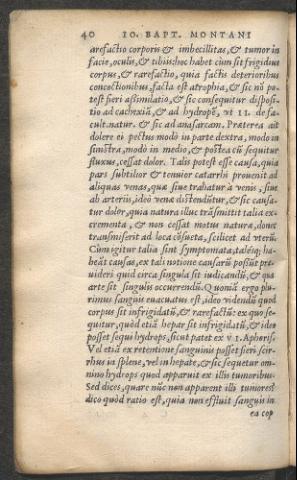 40 IO. BAPT. MONTANI
arefactio corporis & imbecillitas, & tumor in
facie, oculis, & tibiis: hoc habet cùm sit frigidius
corpus, & rarefactio, quia factis deterioribus
concoctionibus, facta est atrophia, & sic nō po
test fieri assimilatio, & sic consequitur disposi-
tio ad cachexiā, & ad hydropē, vt 11. de fa-
cult. natur. & sic ad anasarcam. Praeterea ait
dolere ei pectus modò in parte dextra, modo in
sinistra, modò in medio, & postea cū sequitur
fluxus, cessat dolor. Talis potest esse causa, quia
pars subtilior & tenuior catarrhi prouenit ad
aliquas venas, quae siue trahatur à venis, siue
ab arteriis, ideo venae distendūtur, & sic causa-
tur dolor, quia natura illuc trāsmittit talia ex-
crementa, & non cessat motus naturae, donec
transmiserit ad loca cōsueta, scilicet ad vterū.
Cùm igitur talia sint symptomata, talesq́; ha-
beāt causas, ex tali notione causarū possūt pro
uideri quid circa singula sit iudicandū, & qua
arte sit singulis occurrendū. Quoniā ergo plu-
rimus sanguis euacuatus est, ideo videndū quod
corpus sit infrigidatū, & rarefactū: ex quo se-
quitur, quòd etiā hepar sit infrigidatū, & ideo
posset sequi hydrops, sicut patet ex VI. Aphoris.
Vel etiā ex retentione sanguinis posset fieri scir-
rhus in splene, vel in hepate, & sic sequetur om-
nino hydrops quod apparuit ex illis tumoribus.
Sed dices, quare nūc non apparent illi tumores?
dico quòd ratio est, quia non effluit sanguis in
ea cop